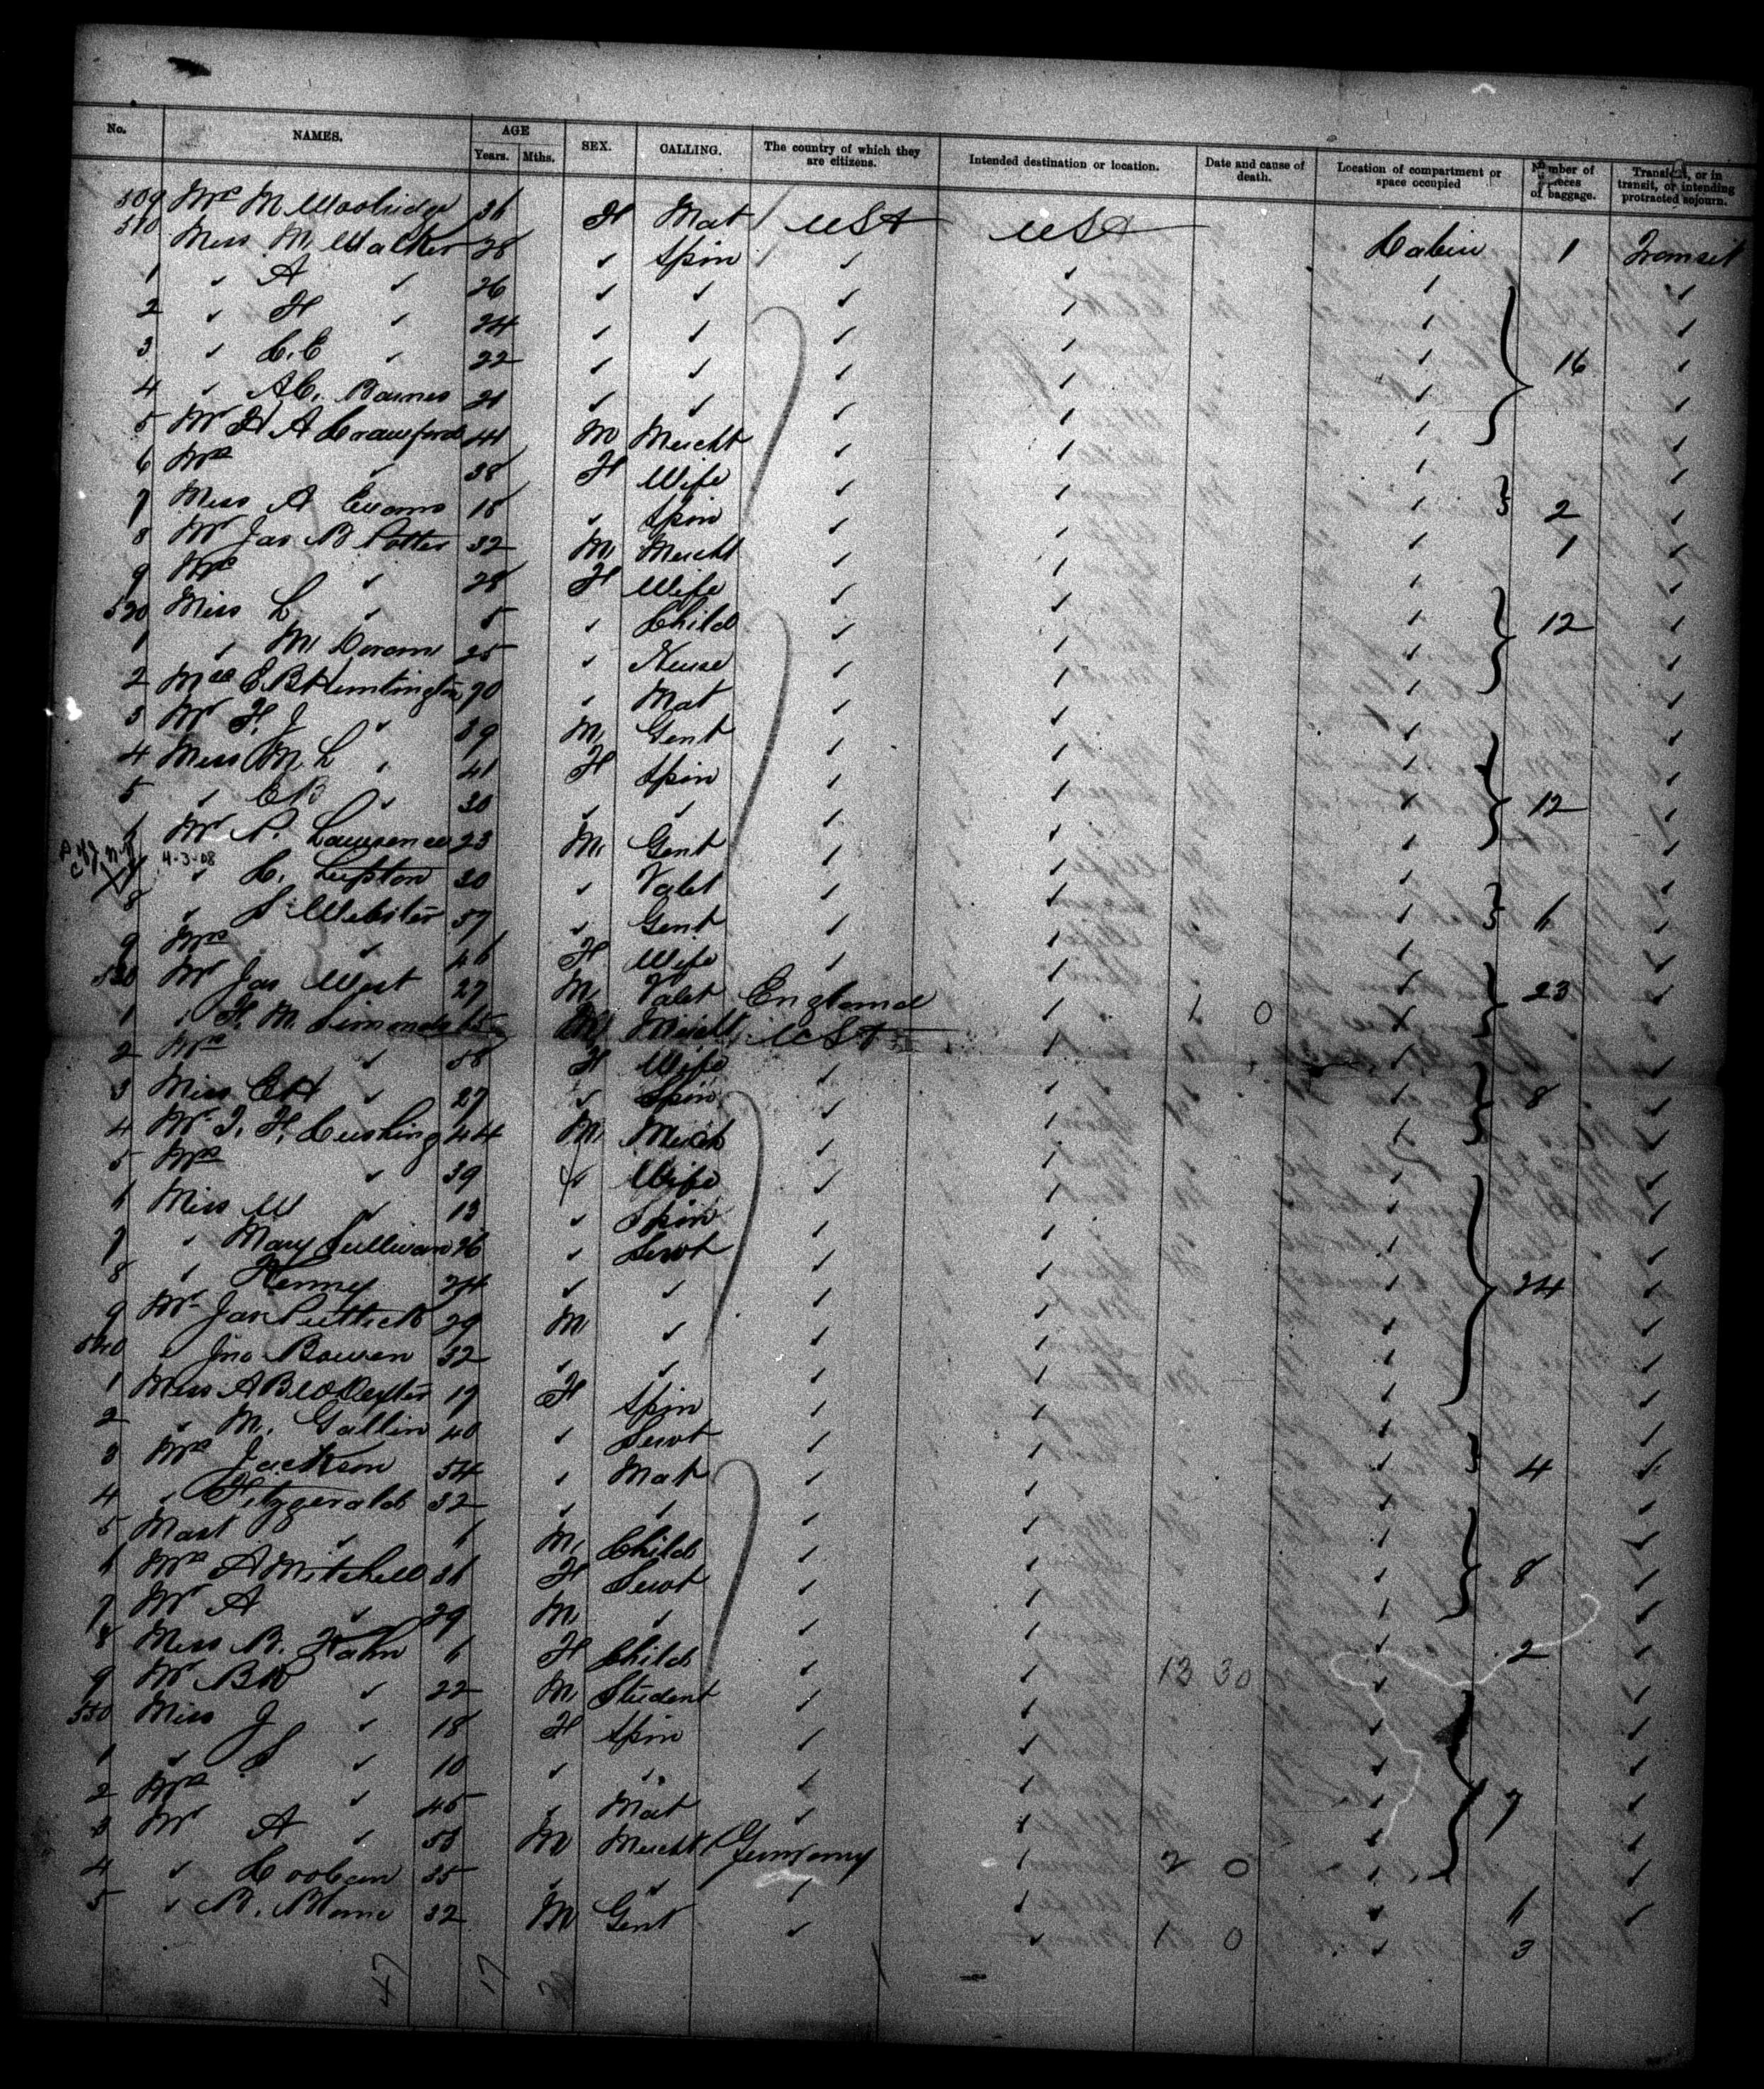 No. NAMES. AGE Years. Mths. SEX. CALLING. The country of which they are citizens. Intended destination or location. Date and cause of death. Location of compartment or space occupied Number of pieces of baggage. Transient, or in transit, or intending protracted sojourn.
509 Mrs M Woolridge 36 F Mat USA USA Cabin 1 Transit
510 Miss M. Walker 28 ✓ Spin ✓ ✓ ✓ ✓
1 ✓ A ✓ 26 ✓ ✓ ✓ ✓ ✓ ✓
2 ✓ F ✓ 24 ✓ ✓ ✓ ✓ ✓ 16 ✓
3 ✓ C.E ✓ 22 ✓ ✓ ✓ ✓ ✓ ✓
4 ✓ A.C. Barnes 21 ✓ ✓ ✓ ✓ ✓ ✓
5 Mr F A Crawford 44 M Mercht ✓ ✓ ✓ ✓
6 Mrs ✓ 38 F Wife ✓ ✓ ✓ 2 ✓
7 Miss A Evans 18 ✓ Spin ✓ ✓ ✓ 1 ✓
8 Mr Jas B Potter 32 M Mercht ✓ ✓ ✓ ✓
9 Mrs ✓ 28 F Wife ✓ ✓ ✓ 12 ✓
520 Miss L ✓ 5 ✓ Child ✓ ✓ ✓ ✓
1 ✓ M. Coram 25 ✓ Nurse ✓ ✓ ✓ ✓
2 Mrs E B Huntington 70 ✓ Mat ✓ ✓ ✓ ✓
3 Mr F. J ✓ 39 M Gent ✓ ✓ ✓ ✓
4 Miss M. L ✓ 41 F Spin ✓ ✓ ✓ 12 ✓
5 ✓ E B ✓ 30 ✓ ✓ ✓ ✓ ✓ ✓
6 Mr P. Lawrence 23 M Gent ✓ ✓ ✓ ✓
4-3-08
7 ✓ C. Lupton 30 ✓ Valet ✓ ✓ ✓ 6 ✓
8 ✓ S Webster 57 ✓ Gent ✓ ✓ ✓ ✓
9 Mrs ✓ 46 F Wife ✓ ✓ ✓ 23 ✓
530 Mr Jas West 27 M Valet England ✓ 1 0 ✓ ✓
1 ✓ F. M. Simonds M Mercht USA ✓ ✓ ✓
2 Mrs ✓ 58 F Wife ✓ ✓ ✓ 8 ✓
3 Miss E H ✓ 27 ✓ Spin ✓ ✓ ✓ ✓
4 Mr T. F. Cushing 44 M Merch ✓ ✓ ✓ ✓
5 Mrs ✓ 39 ✓ Wife ✓ ✓ ✓ ✓
6 Miss M ✓ 13 ✓ Spin ✓ ✓ ✓ ✓
7 ✓ Mary Sullivan 26 ✓ Servt ✓ ✓ ✓ 24 ✓
8 ✓ Kenney 24 ✓ ✓ ✓ ✓ ✓ ✓
9 Mr Jas 29 M ✓ ✓ ✓ ✓ ✓
540 ✓ Jno Bowen 32 ✓ ✓ ✓ ✓ ✓ ✓
1 Miss A B 17 F Spin ✓ ✓ ✓ ✓
2 ✓ M. Gallin 40 ✓ Servt ✓ ✓ ✓ 4 ✓
3 Mrs Jackson 54 ✓ Mat ✓ ✓ ✓ ✓
4 ✓ Fitzgerald 32 ✓ ✓ ✓ ✓ ✓ ✓
5 Mast ✓ M. Child ✓ ✓ ✓ 8 ✓
6 Mrs A Mitchell 31 F Servt ✓ ✓ ✓ ✓
7 Mr A ✓ 29 M ✓ ✓ ✓ ✓ 2 ✓
8 Miss B. Kahn 6 F Child ✓ ✓ 13 30 ✓ ✓
9 Mr B R ✓ 22 M Student ✓ ✓ ✓ ✓
550 Miss J ✓ 18 F Spin ✓ ✓ ✓ ✓
1 ✓ S ✓ 10 ✓ ✓ ✓ ✓ ✓ 7 ✓
2 Mrs ✓ 45 ✓ Mat ✓ ✓ ✓ ✓
3 Mr A ✓ 58 M Mercht Germany ✓ 2 0 ✓ ✓
4 ✓ 35 ✓ ✓ ✓ ✓ ✓ 1 ✓
5 ✓ 32 M Gent ✓ ✓ 1 0 ✓ 3
47 17